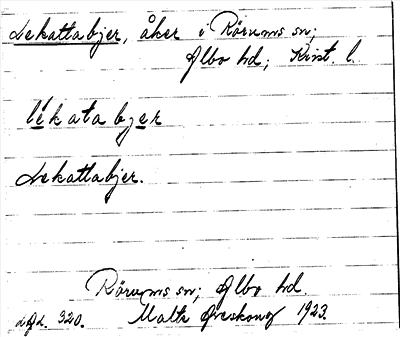 Lekattabjer, åker i Rörums sn;
Albo hd; Krist. l.
lékatabjer
Lekattabjer.
Rörums sn; Albo hd.
320. Malte 1923.